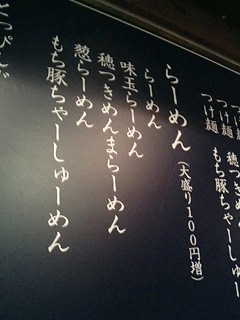 つけ麺
つけ麺
つけ麺
穂つき
もち豚ちゃーし
らーめん（大盛り100円増）
らーめん
味玉らーめん
穂つきめんまらーめん
葱らーめん
もち豚ちゃーしゅーめん
とっぴんぐ